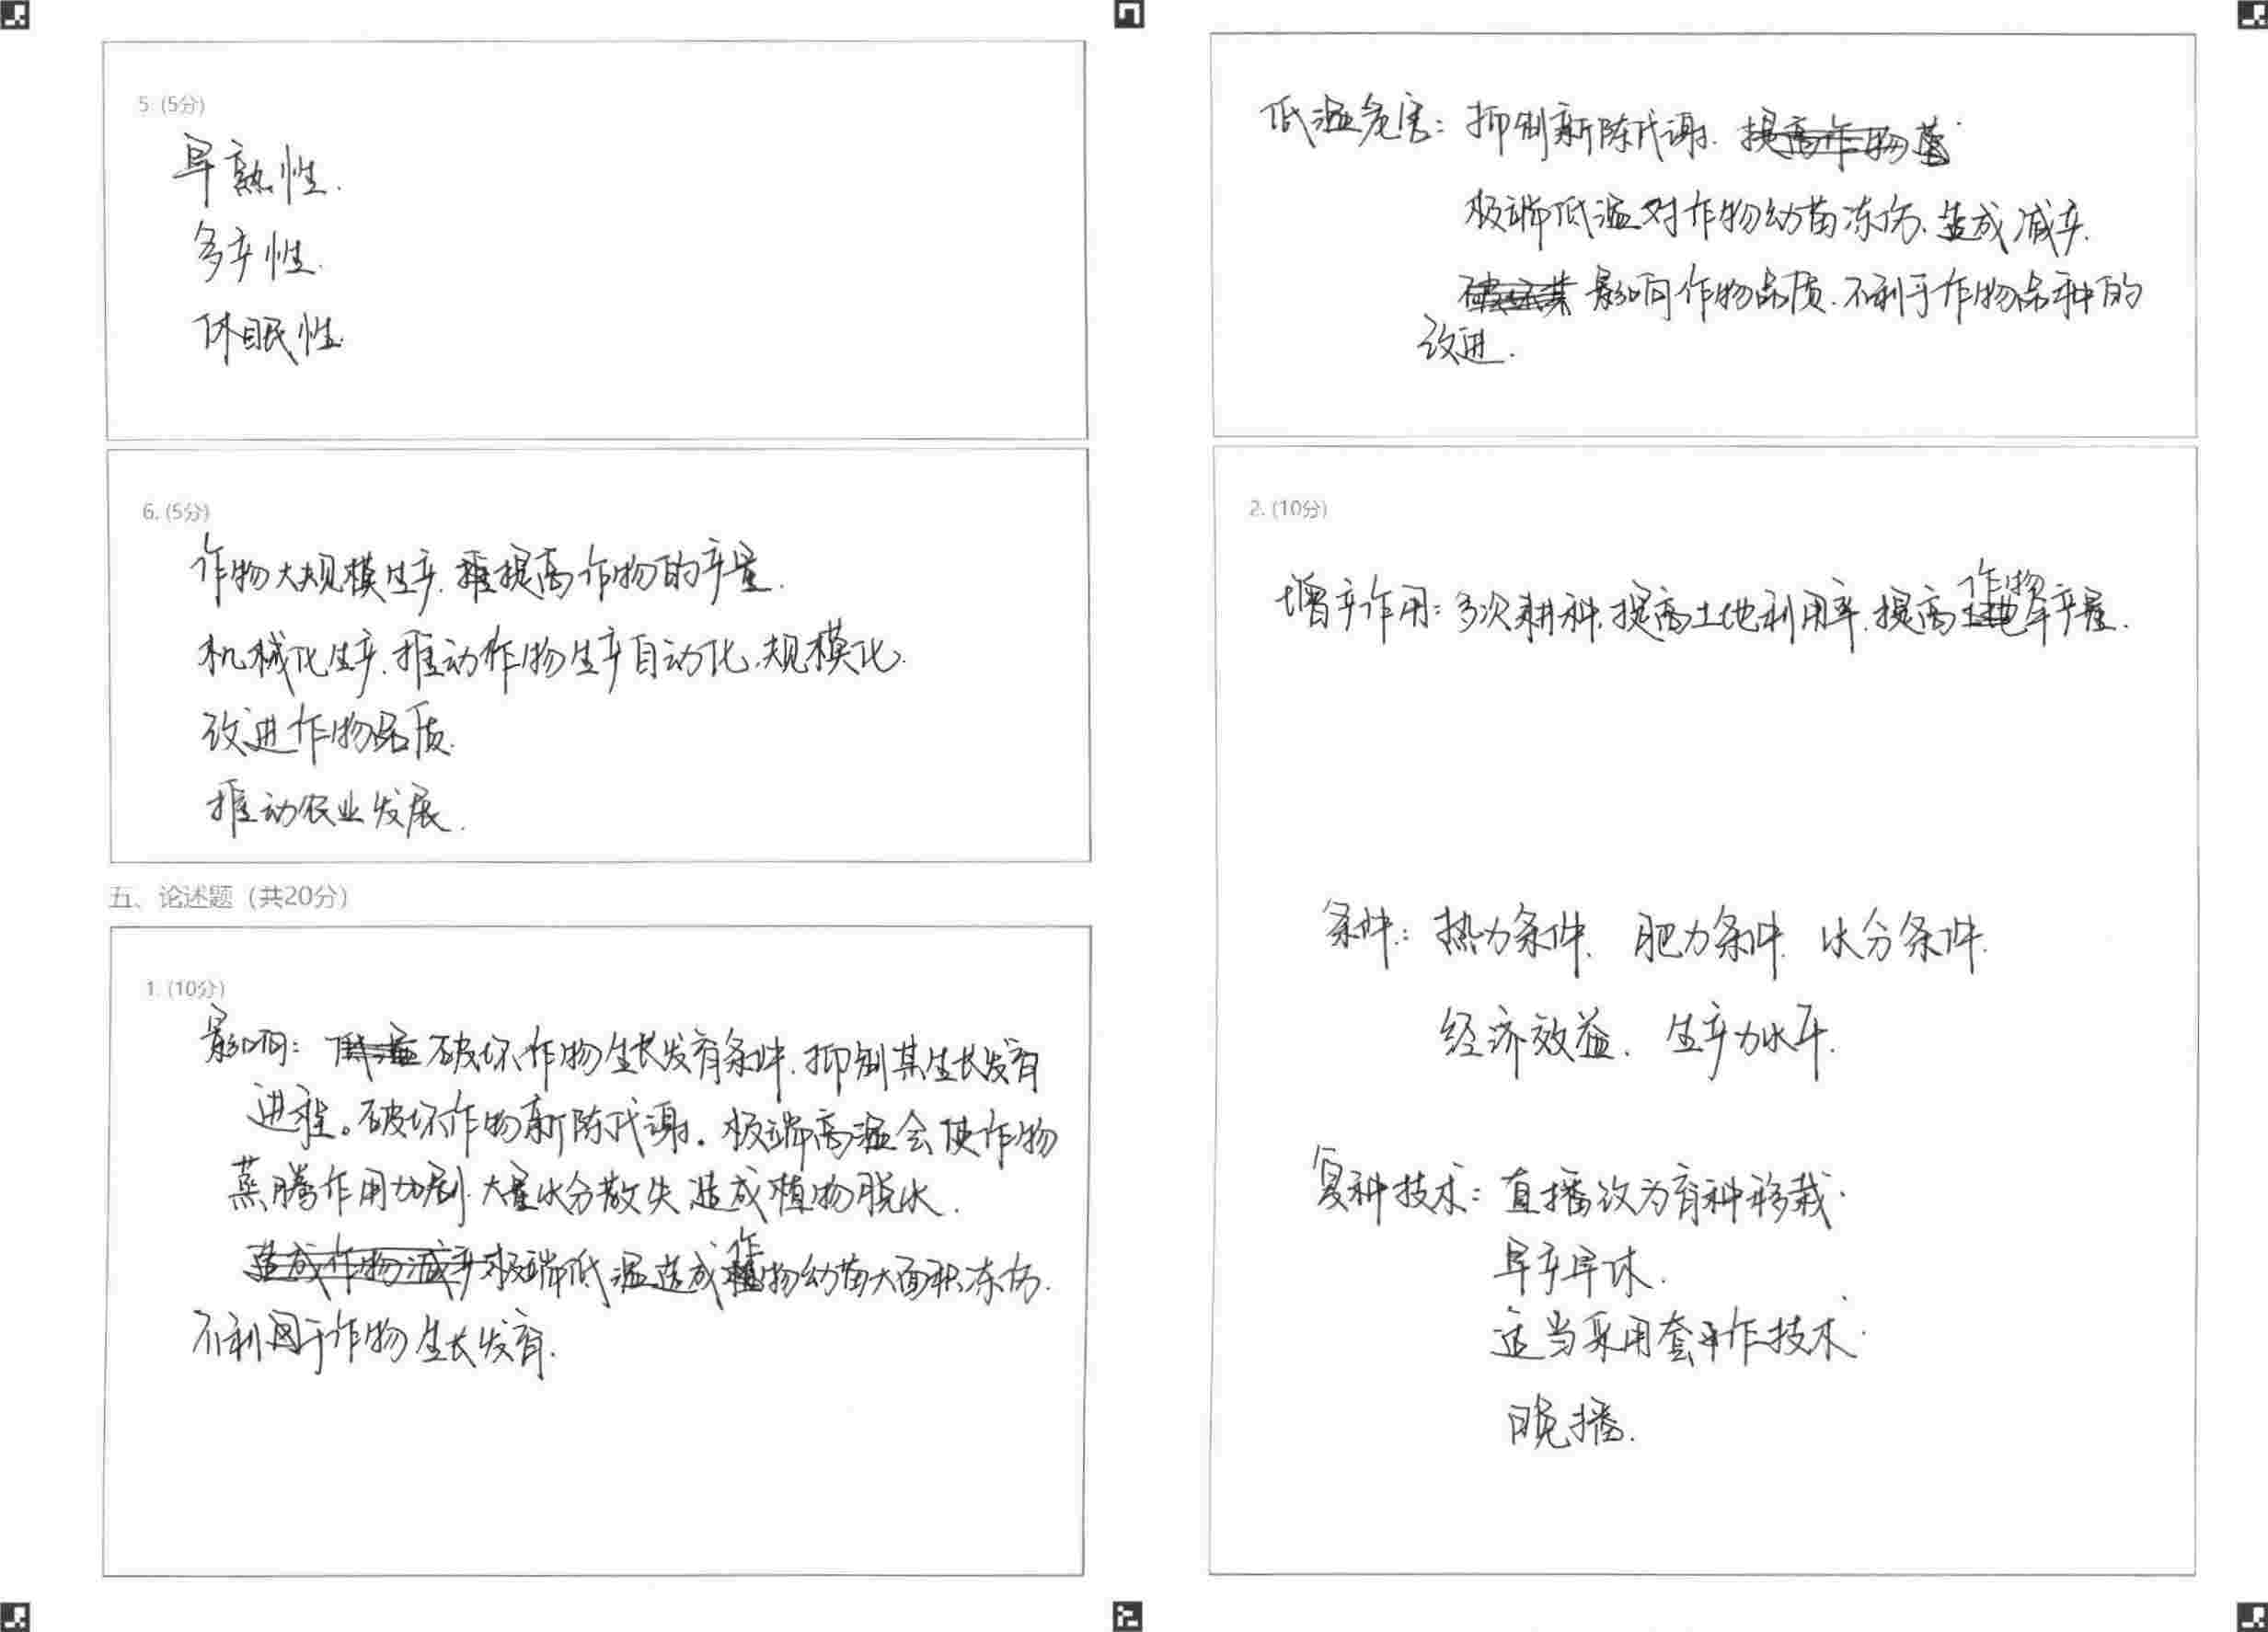 5. (5分)
早熟性.
多产性.
休眠性.
6. (5分)
作物大规模生产.提高作物的产量.
机械化生产.推动作物生产自动化.规模化.
改进作物品质.
推动农业发展.
五、论述题（共20分）
1. (10分)
影响: 破坏作物生长发育条件.抑制其生长发育
进程。破坏作物新陈代谢。极端高温会使作物
蒸腾作用加剧.大量水分散失造成植物脱水.
极端低温造成作物幼苗大面积冻伤.
不利于作物生长发育.
低温危害: 抑制新陈代谢.
极端低温对作物幼苗冻伤.造成减产.
影响作物品质.不利于作物品种的
改进.
2. (10分)
增产作用: 多次耕种.提高土地利用率.提高作物产量.
条件: 热力条件. 肥力条件. 水分条件.
经济效益. 生产力水平.
复种技术: 直播改为育种移栽.
早产早休.
适当采用套作技术.
晚播.